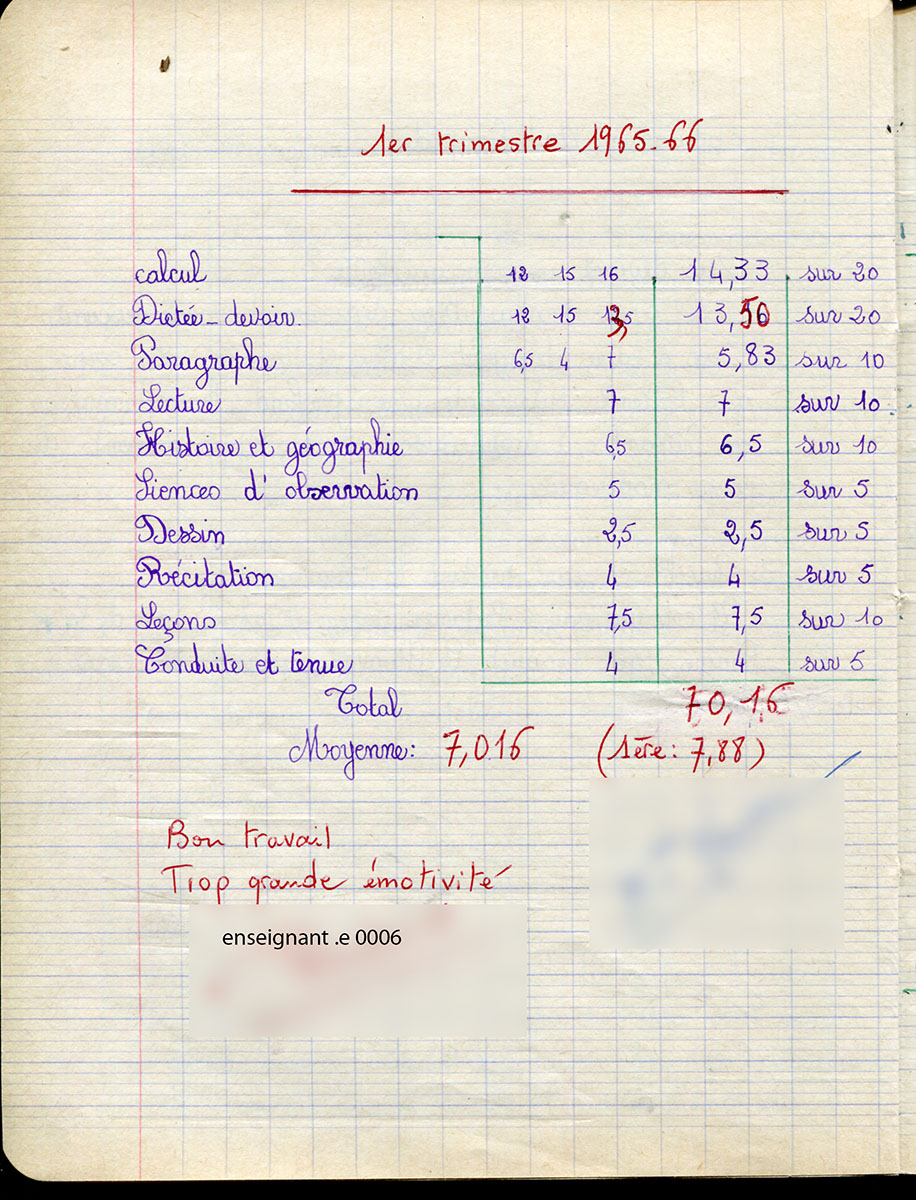 1er trimestre 1965.66
calcul 12 15 16 14,33 sur 20
Dictée_devoir. 12 15 13,5 13,50 sur 20
Paragraphe 6,5 4 7 5,83 sur 10
Lecture 7 7 sur 10
Histoire et géographie 6,5 6,5 sur 10
Siences d'observation 5 5 sur 5
Dessin 2,5 2,5 sur 5
Récitation 4 4 sur 5
Leçons 7,5 7,5 sur 10
Conduite et tenue 4 4 sur 5
Total 70,16
Moyenne: 7,016 (1ère: 7,88)
Bon travail
Trop grande émotivité
enseignant .e 0006